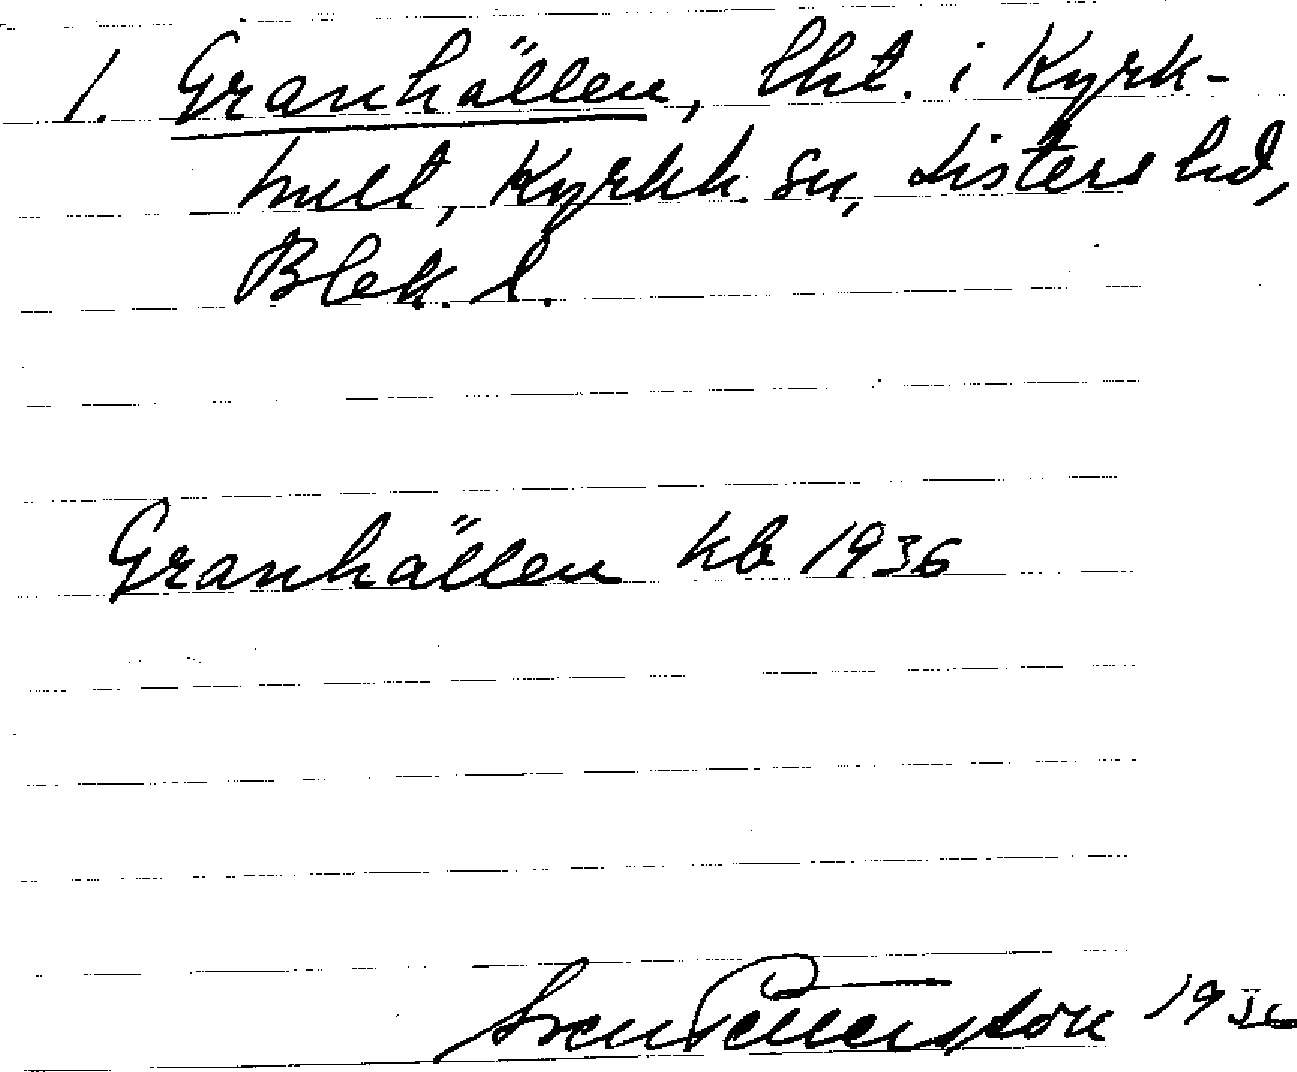 1. Granhällen, lht. i Kyrk-
hult, Kyrkh. sn, Listers hd,
Blek. l.
Granhällen kb 1936
Sven Pettersson 1936